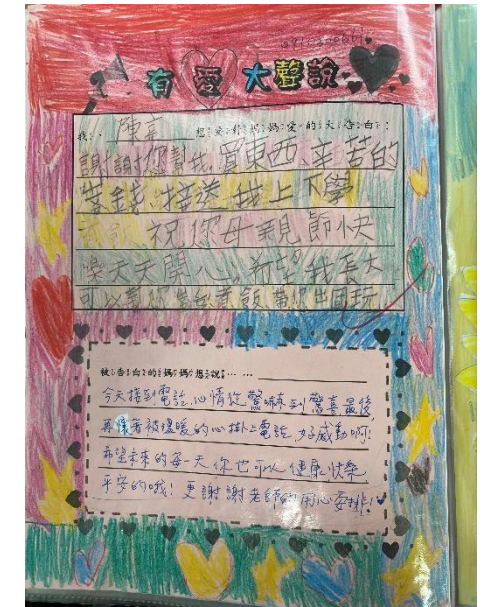 有愛大聲說
我，陳 想要對媽媽愛的大告白：
謝謝您幫我買東西、辛苦的
賺錢、接送我上下學
祝你母親節快
樂天天開心，希望我長大
可以幫你煮飯帶你出國玩
被告白的媽媽想說……
今天接到電話，心情從驚嚇到驚喜最後
再懷著被溫暖的心掛上電話，好感動啊！
希望未來的每一天你也可以健康快樂
平安的哦！更謝謝老師的用心安排！